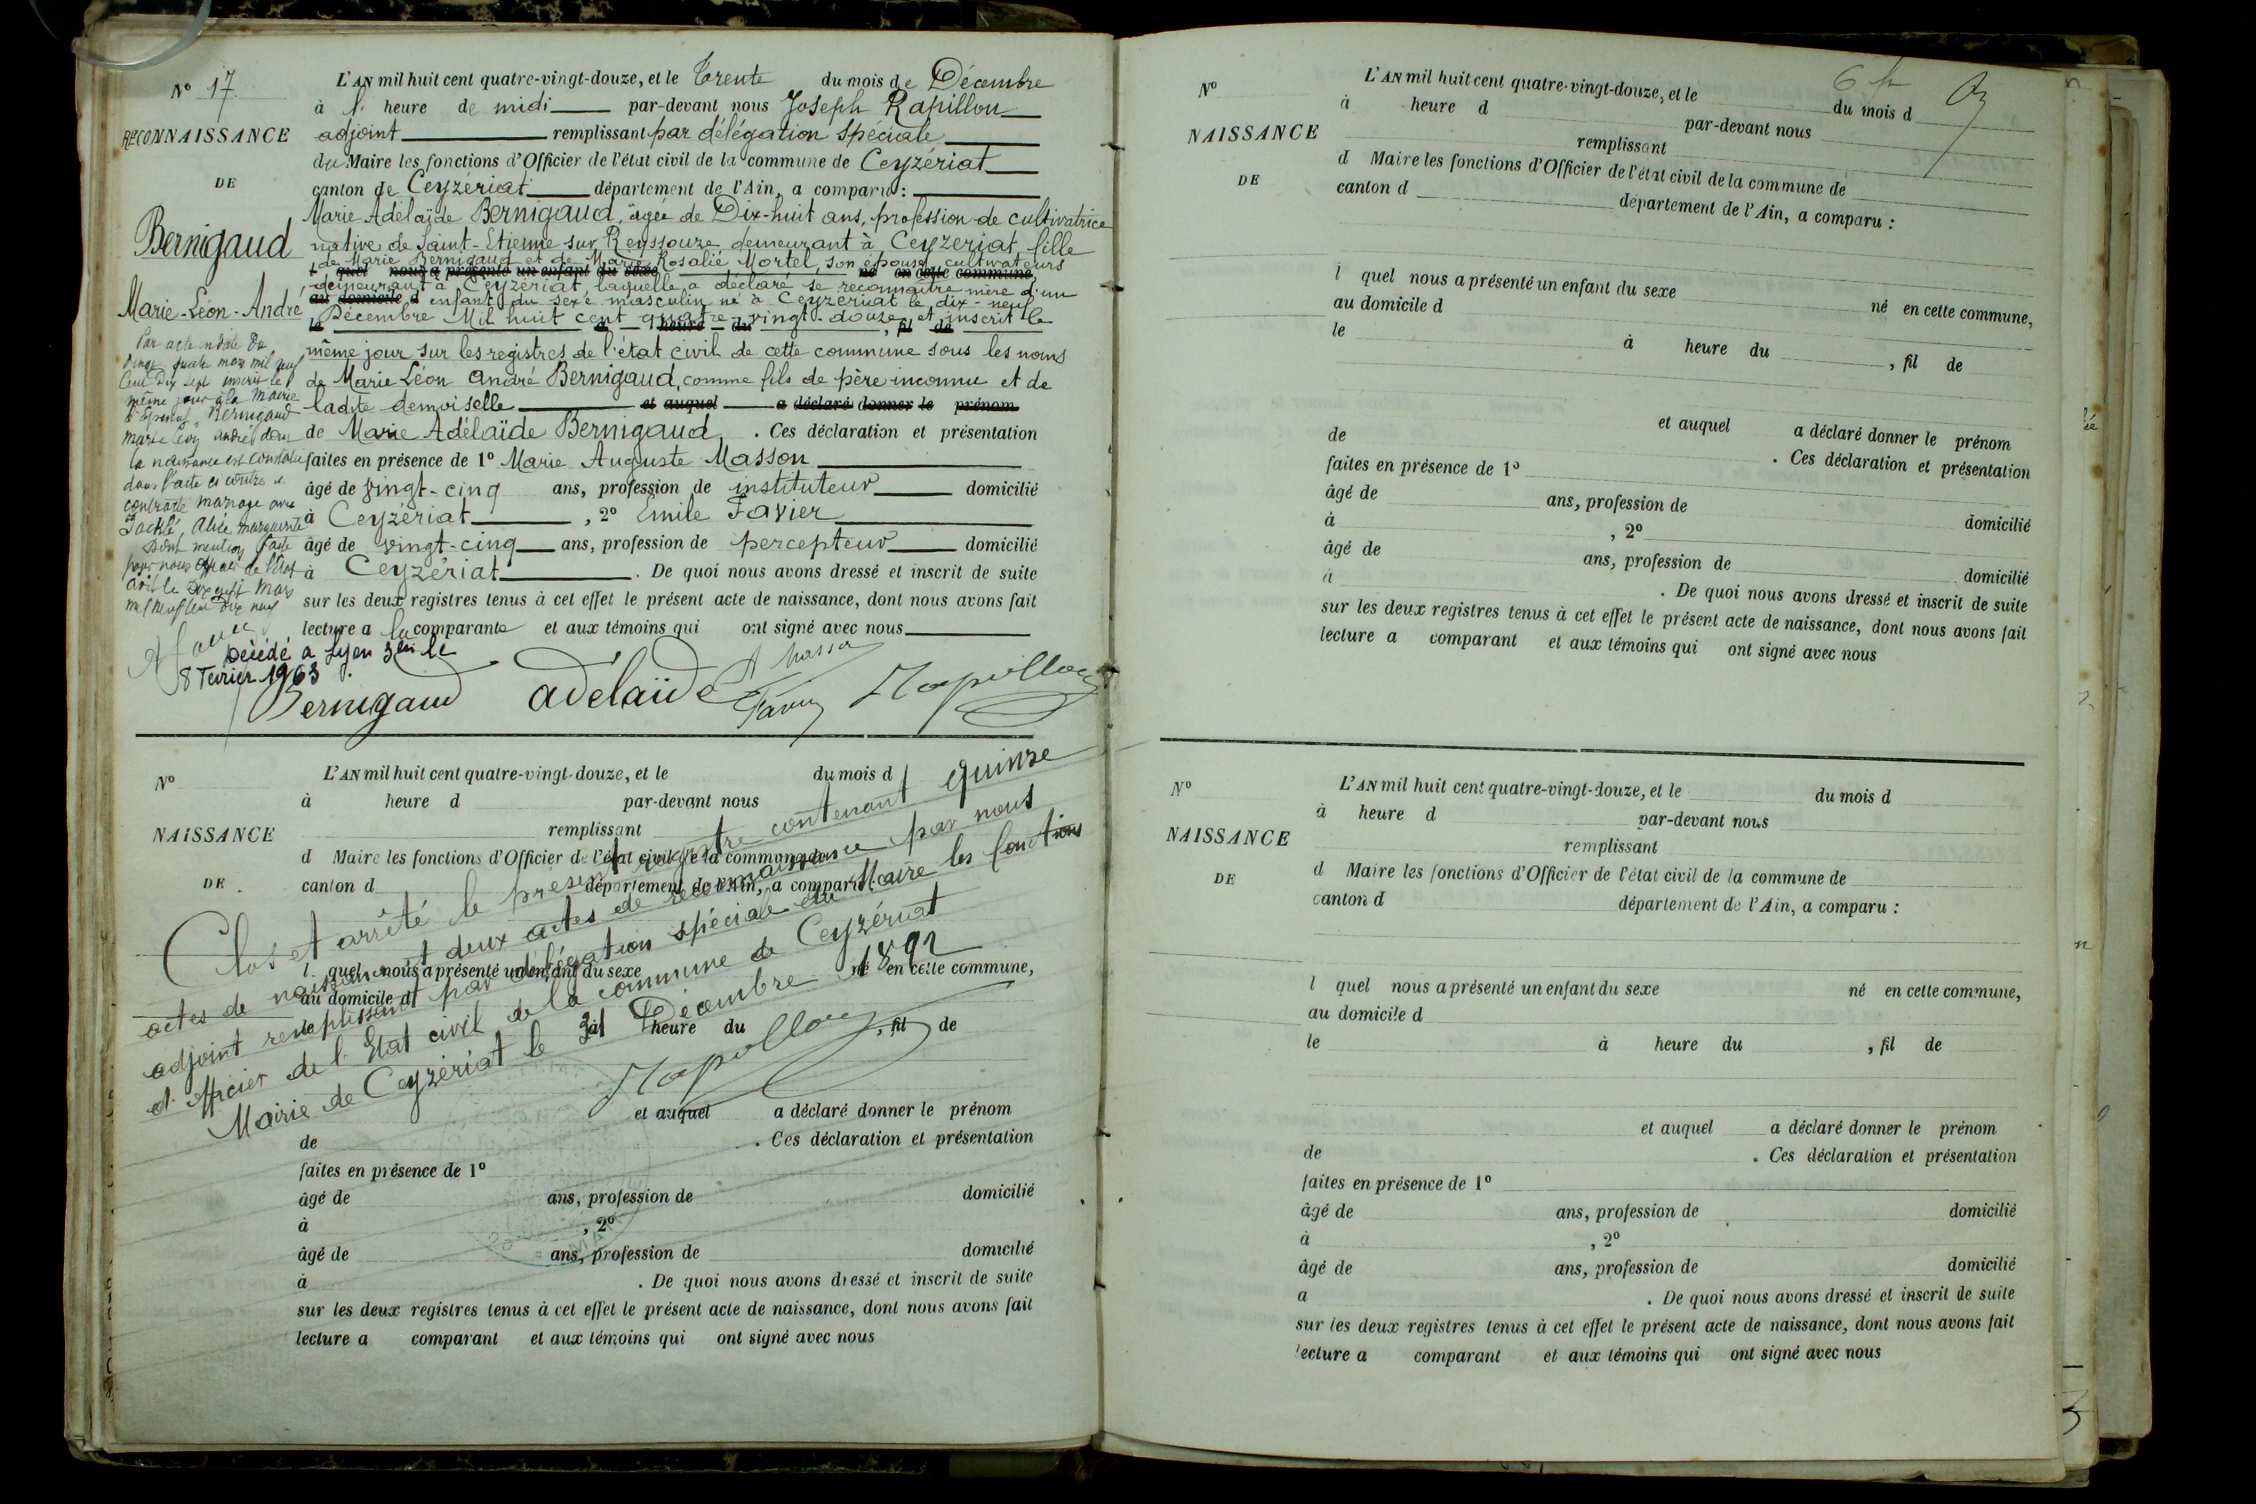 N° 17
RECONNAISSANCE
DE
Bernigaud
Marie-Léon-André
Par acte en date du
vingt quatre mars mil neuf
cent dix sept inscrit le
même jour à la Mairie
d'Epinal, Bernigaud
Marie Léon André dont
la naissance est constatée
dans l'acte ci contre a
contracté mariage avec
Alice Marguerite
Dont mention faite
par nous officier de l'état
civil le Mars
mil neuf cent dix neuf
Décédé à Lyon 3em le
8 Février 1963
L'AN mil huit cent quatre-vingt-douze, et le Trente du mois de Décembre
à l' heure de midi par-devant nous Joseph Rapillon
adjoint remplissant par délégation spéciale
du Maire les fonctions d'Officier de l'état civil de la commune de Ceyzériat
canton de Ceyzériat département de l'Ain, a comparu :
Marie Adélaïde Bernigaud, âgée de Dix-huit ans, profession de cultivatrice
native de Saint-Etienne sur Reyssouze demeurant à Ceyzériat, fille
de Marie Bernigaud et de Marie Rosalie Mortel, son épouse, cultivateurs
l quel nous a présenté un enfant du sexe né en cette commune,
demeurant à Ceyzériat, laquelle a déclaré se reconnaître mère d'un
au domicile d enfant du sexe masculin né à Ceyzériat le dix-neuf
Décembre Mil huit cent quatre-vingt-douze et inscrit le
le à heure du , fil de
même jour sur les registres de l'état civil de cette commune sous les noms
de Marie Léon André Bernigaud, comme fils de père inconnu et de
ladite demoiselle et auquel a déclaré donner le prénom
de Marie Adélaïde Bernigaud. . Ces déclaration et présentation
faites en présence de 1° Marie Auguste Masson
âgé de vingt-cinq ans, profession de instituteur domicilié
à Ceyzériat , 2° Emile Favier
âgé de vingt-cinq ans, profession de percepteur domicilié
à Ceyzériat . De quoi nous avons dressé et inscrit de suite
sur les deux registres tenus à cet effet le présent acte de naissance, dont nous avons fait
lecture a la comparante et aux témoins qui ont signé avec nous
Bernigaud adélaïde A Masson Favier Rapillon
N°
NAISSANCE
DE
L'AN mil huit cent quatre-vingt-douze, et le du mois d
à heure d par-devant nous
remplissant
d Maire les fonctions d'Officier de l'état civil de la commune de
canton d département de l'Ain, a comparu :
l quel nous a présenté un enfant du sexe né en cette commune,
au domicile d
le à heure du , fil de
et auquel a déclaré donner le prénom
de . Ces déclaration et présentation
faites en présence de 1°
âgé de ans, profession de domicilié
à , 2°
âgé de ans, profession de domicilié
à . De quoi nous avons dressé et inscrit de suite
sur les deux registres tenus à cet effet le présent acte de naissance, dont nous avons fait
lecture a comparant et aux témoins qui ont signé avec nous
Clos et arrêté le présent registre contenant quinze
actes de naissance et deux actes de reconnaissance par nous
adjoint remplissant par délégation spéciale du Maire les fonctions
d'officier de l'Etat civil de la commune de Ceyzériat
Mairie de Ceyzériat le 31 Décembre 1892
Rapillon
6 f
N°
NAISSANCE
DE
L'AN mil huit cent quatre-vingt-douze, et le du mois d
à heure d par-devant nous
remplissant
d Maire les fonctions d'Officier de l'état civil de la commune de
canton d département de l'Ain, a comparu :
l quel nous a présenté un enfant du sexe né en cette commune,
au domicile d
le à heure du , fil de
et auquel a déclaré donner le prénom
de . Ces déclaration et présentation
faites en présence de 1°
âgé de ans, profession de domicilié
à , 2°
âgé de ans, profession de domicilié
à . De quoi nous avons dressé et inscrit de suite
sur les deux registres tenus à cet effet le présent acte de naissance, dont nous avons fait
lecture a comparant et aux témoins qui ont signé avec nous
N°
NAISSANCE
DE
L'AN mil huit cent quatre-vingt-douze, et le du mois d
à heure d par-devant nous
remplissant
d Maire les fonctions d'Officier de l'état civil de la commune de
canton d département de l'Ain, a comparu :
l quel nous a présenté un enfant du sexe né en cette commune,
au domicile d
le à heure du , fil de
et auquel a déclaré donner le prénom
de . Ces déclaration et présentation
faites en présence de 1°
âgé de ans, profession de domicilié
à , 2°
âgé de ans, profession de domicilié
a . De quoi nous avons dressé et inscrit de suite
sur les deux registres tenus à cet effet le présent acte de naissance, dont nous avons fait
lecture a comparant et aux témoins qui ont signé avec nous